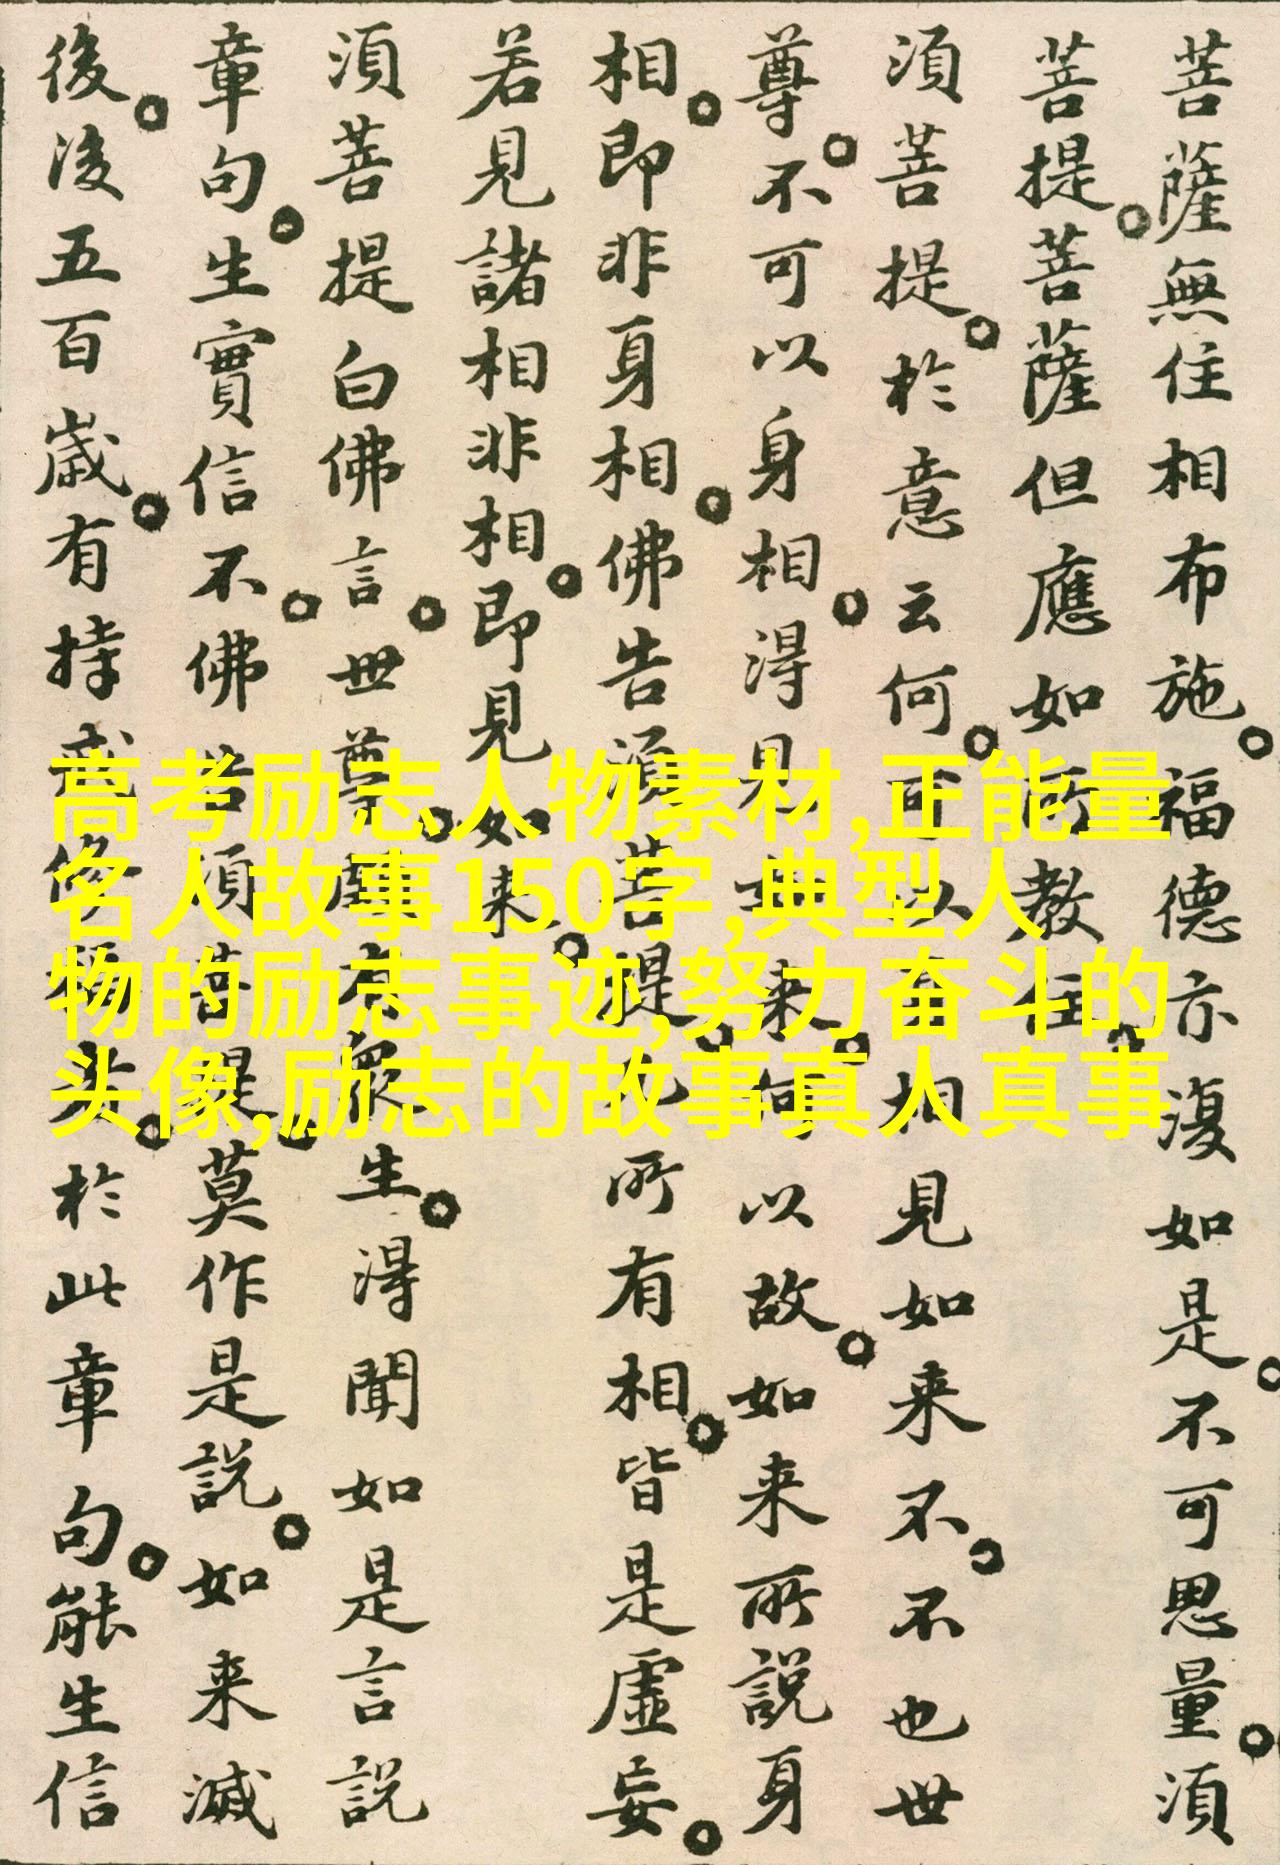 菩薩無住相布施。福德亦復如是。不可思量。須
菩提。菩薩但應如所教住。
須菩提。於意云何。可以身相見如来不。不也世
尊。不可以身相。得見如来。何以故。如来所說身
相。即非身相。佛告須菩提。凡所有相。皆是虛妄。
若見諸相非相。即見如来。
須菩提白佛言。世尊。頗有衆生。得聞如是言說
章句。生實信不。佛告須菩提。莫作是說。如来滅
後。後五百歲。有持戒修福者。於此章句。能生信
高考励志人物素材,正能量
名人故事150字,典型人
物的励志事迹,努力奋斗的
头像,励志的故事真人真事